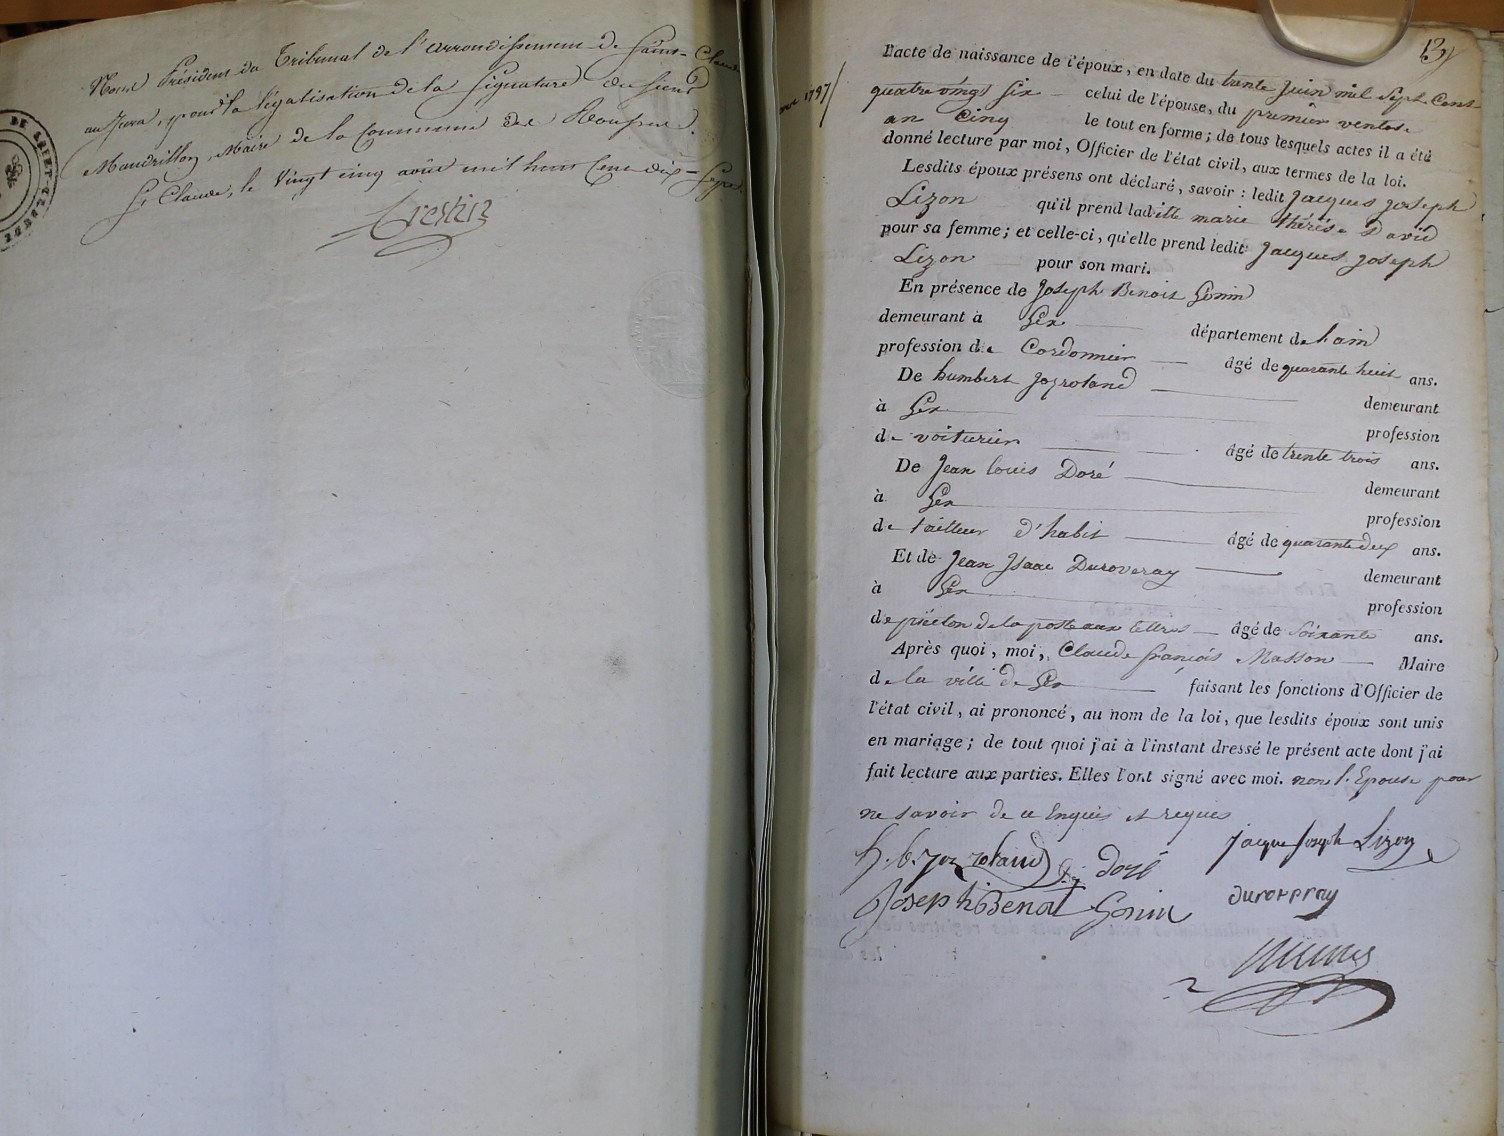 Nous Président du Tribunal de l'arrondissement de Saint-Claude
au Jura, pour la légalisation de la Signature du Sieur
Mandrillon, Maire de la Commune de
St Claude, le Vingt cinq août mil huit Cent dix-Sept.
Crestin
13
1797
L'acte de naissance de l'époux, en date du trente Juin mil Sept Cent
quatre vingt Six celui de l'épouse, du premier ventose
an Cinq le tout en forme; de tous lesquels actes il a été
donné lecture par moi, Officier de l'état civil, aux termes de la loi.
Lesdits époux présens ont déclaré, savoir: ledit Jacques Joseph
Lizon qu'il prend ladite marie thérèse David
pour sa femme; et celle-ci, qu'elle prend ledit Jacques Joseph
Lizon pour son mari.
En présence de Joseph Benoit Gonin
demeurant à Gex département de l'ain
profession de Cordonnier âgé de quarante huit ans.
De humbert Jozroland demeurant
à Gex profession
de voiturier âgé de trente trois ans.
De Jean louis Doré demeurant
à Gex profession
de tailleur d'habit âgé de quarante deux ans.
Et de Jean Isaac Duroveray demeurant
à Gex profession
de piéton de la poste aux lettres âgé de Soixante ans.
Après quoi, moi, Claude françois Masson Maire
de la ville de Gex faisant les fonctions d'Officier de
l'état civil, ai prononcé, au nom de la loi, que lesdits époux sont unis
en mariage; de tout quoi j'ai à l'instant dressé le présent acte dont j'ai
fait lecture aux parties. Elles l'ont signé avec moi. non l'Epouse pour
ne savoir de ce Enquis et requis
h. b. Jozroland doré Jacque Joseph Lizon
Joseph Benoit Gonin duroveray